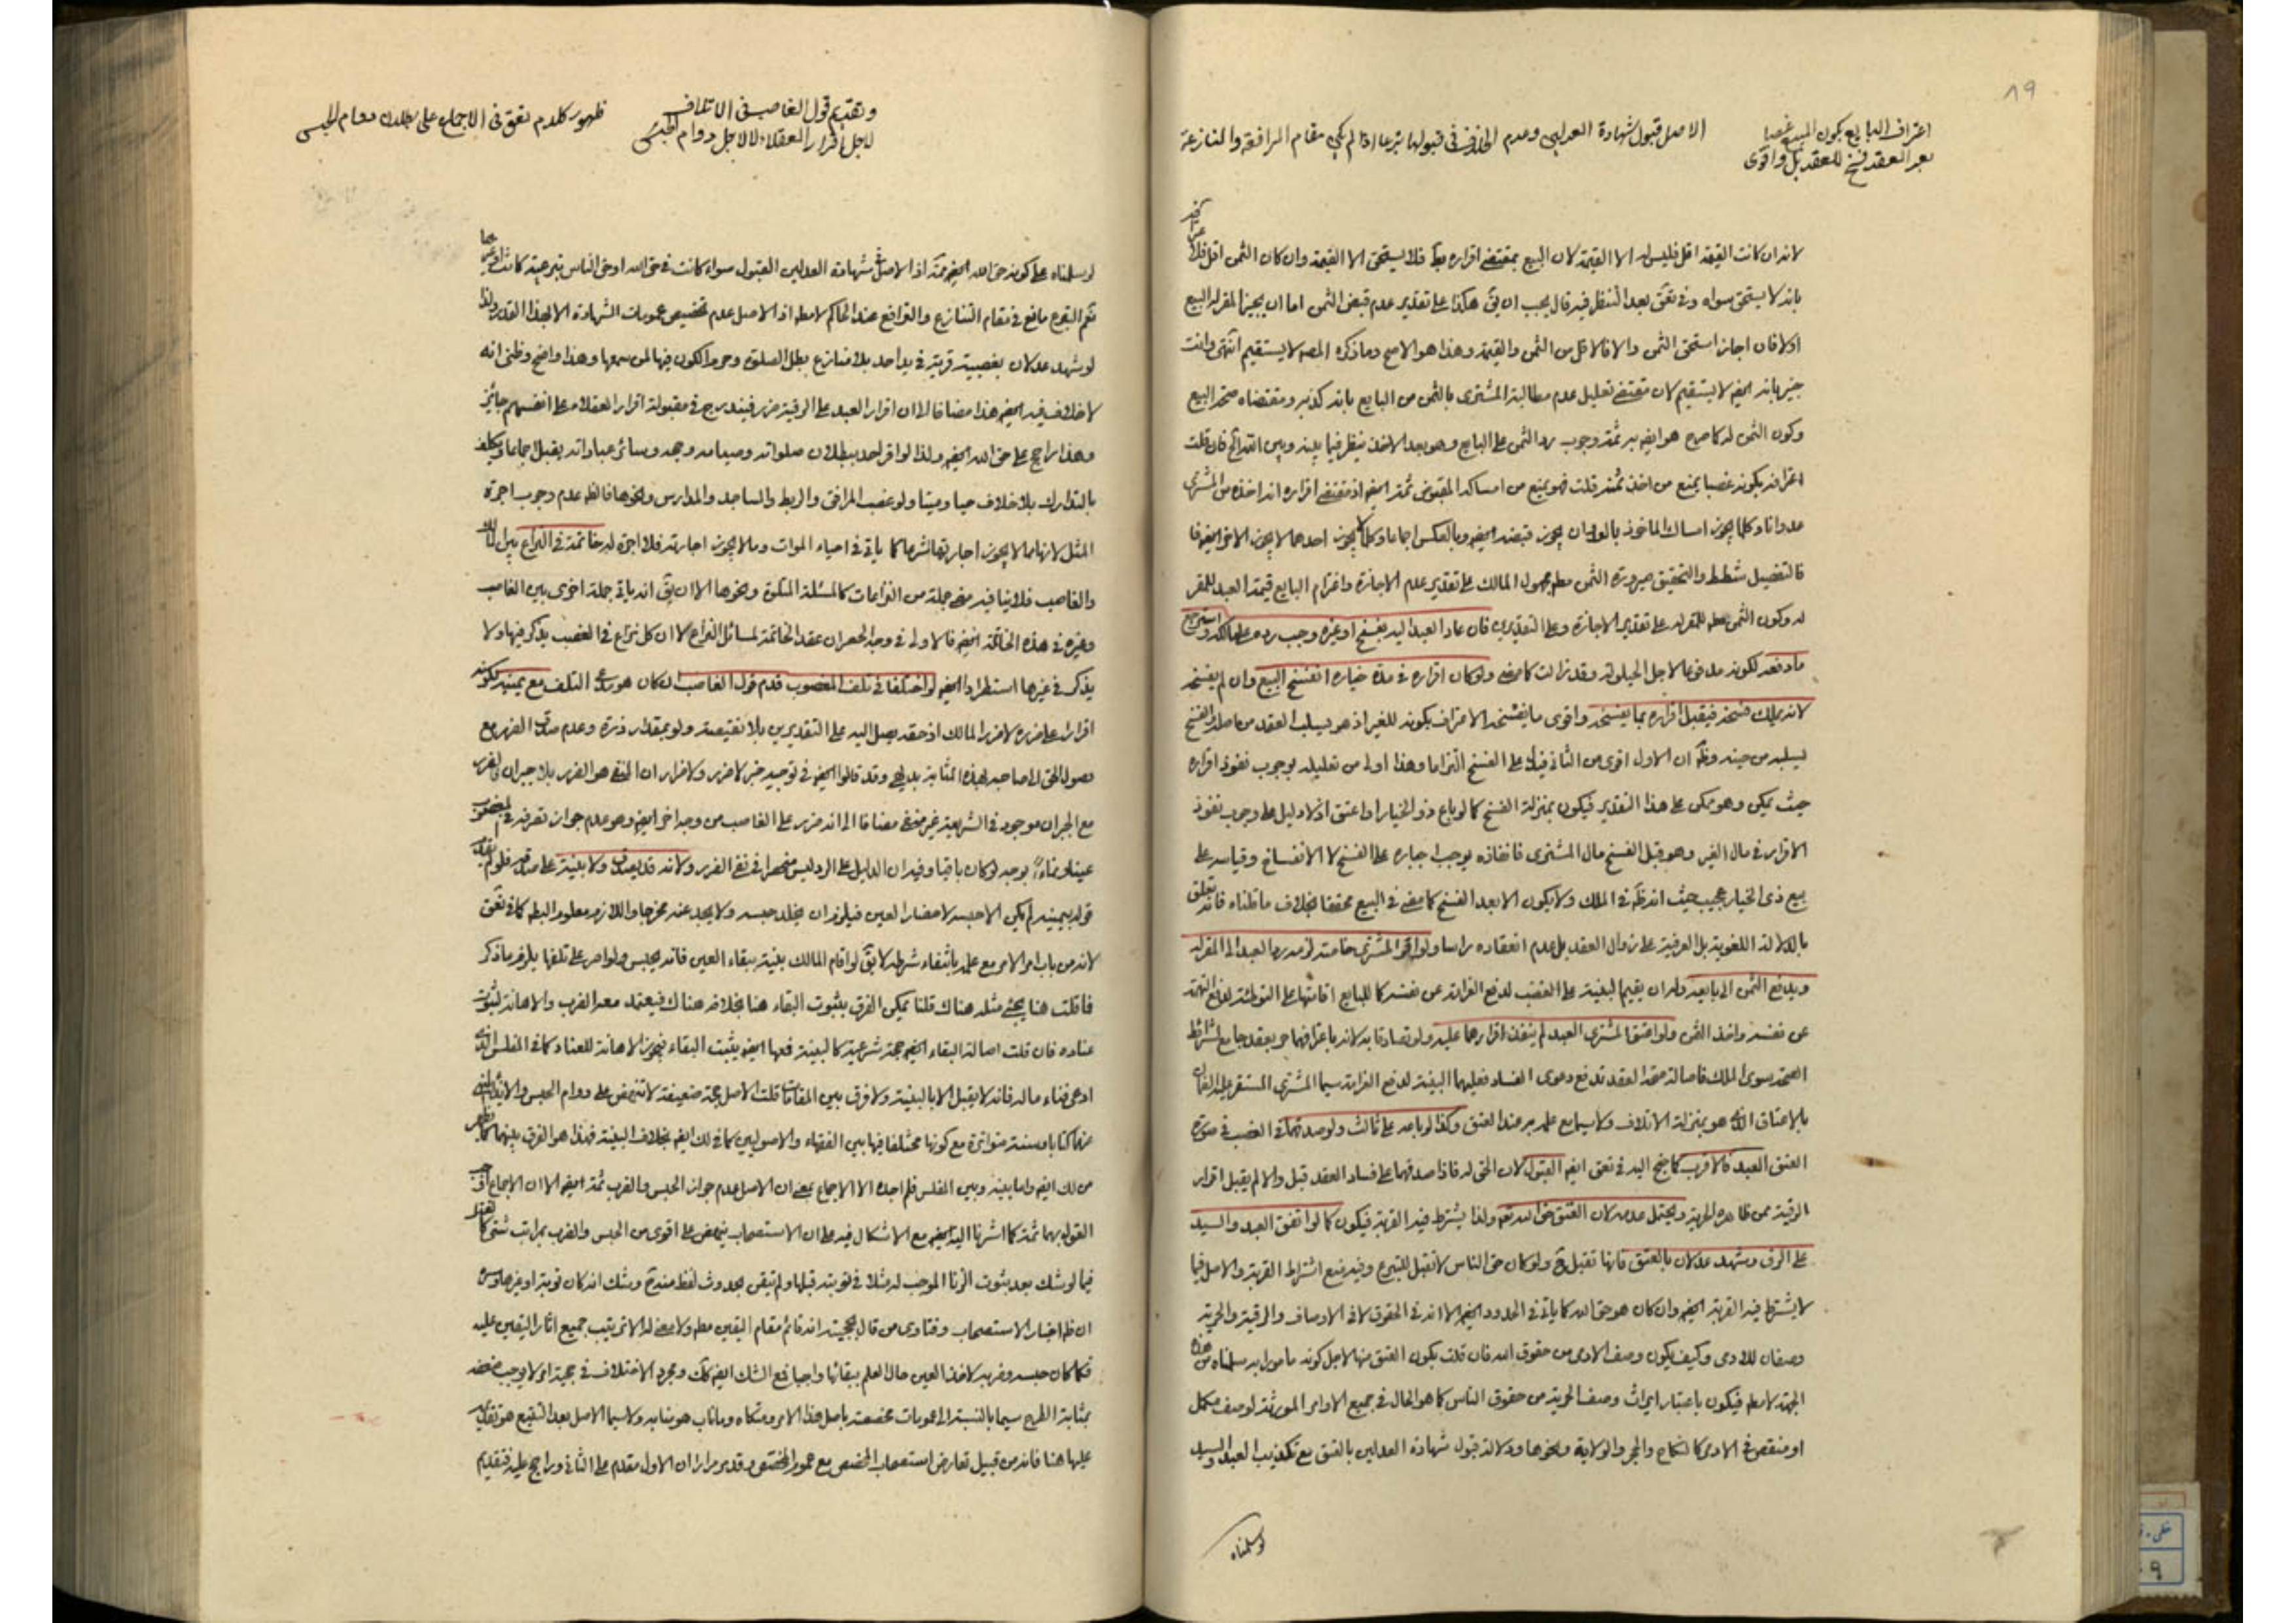 ۸۹
اعتراف البايع بكون المبيع غصبا
بعد العقد فسخ للعقد بل واقوى
الاصل قبول شهادة العدلين وعدم الخلاف في قبولها تبرعا اذا لم يكن مقام المرافعة والمنازعة
لانه ان كانت القيمة اقل فليس له الا القيمة لان البيع بمقتضى اقراره فلا يستحق الا القيمة وان كان الثمن اقل فلا
بانه لا يستحق سواه وفي تعق بعد التنظر فيه قال يجب ان يق هكذا على تقدير عدم قبض الثمن اما ان يجيز المقر له البيع
اولا فان اجاز استحق الثمن والا فالاقل من الثمن والقيمة وهذا هو الاصح وما ذكره المصه لا يستقيم انتهى وانت
خبير بانه ايضه لا يستقيم لان مقتضى تعليل عدم مطالبة المشترى بالثمن من البايع بانه كذبه ومقتضاه صحة البيع
وكون الثمن له كما صرح هو ايضه به ثمة وجوب رد الثمن على البايع وهو بعد الاخذ ينظر فيما بينه وبين الله فان قلت
اعترافه بكونه غصبا يمنع من اخذ ثمنه قلت فهو يمنع من امساكه المقبوض ثمة ايضه اذ مقتضى اقراره انه اخذه من المشترى
عدوانا وكلما يجوز امساك الماخوذ بالعدوان يجوز قبضه ايضه وبالعكس اجماعا وكلما لا يجوز احدهما لا يجوز الاخر ايضه فا
فالتفصيل شطط والتحقيق صيرورة الثمن مطه مجهول المالك على تقدير عدم الاجازة واغترام البايع قيمة العبد للمقر
له وكون الثمن مطه للمقر له على تقدير الاجازة وعلى التقديرين فان عاد العبد اليه بفسخ او غيره وجب رده على مالكه واسترجع
ما دفعه لكونه مدفوعا لاجل الحيلولة وقد زالت كما مضى ولو كان اقراره في مدة خياره انفسخ البيع وان لم يفسخه
لانه يملك فسخه فيقبل اقراره بما يفسخه واقوى ما يفسخه الاعتراف بكونه للغير اذ هو يسلب العقد من اصله والفسخ
يسلبه من حينه وظه ان الاول اقوى من الثاني فيدل على الفسخ التزاما وهذا اولى من تعليله بوجوب نفوذ اقراره
حيث يمكن وهو يمكن على هذا التقدير فيكون بمنزلة الفسخ كما لو باع ذو الخيار او اعتق اذ لا دليل على وجوب نفوذ
الاقرار في مال الغير وهو قبل الفسخ مال المشترى فانفاذه يوجب اجباره على الفسخ لا الانفساخ وقياسه على
بيع ذى الخيار عجيب حيث انه ظه في الملك ولا يكون الا بعد الفسخ كما مضى في البيع محققا بخلاف ما قلناه فانه تعلق
بالدلالة اللغوية بل العرفية على زوال العقد بل عدم انعقاده راسا ولو اقر المشترى خاصة لزمه رد العبد الى المقر له
ويدفع الثمن الى بايعه وله ان يقيم البينة على الغصب لدفع الغرامة عن نفسه كما للبايع اقامتها على التوطئة لدفع التهمة
عن نفسه واخذ الثمن ولو اعتق المشترى العبد لم ينفذ اقرارهما عليه ولو تصادقا به لانه باعترافهما حر بعقد جامع لشرائط
الصحة سوى الملك فاصالة صحة العقد تدفع دعوى الفساد فعليهما البينة لدفع الغرامة سيما المشترى المستقر عليه الضمان
بالاعتاق الذى هو بمنزلة الاتلاف ولا سيما مع علمه به عند العتق وكذا لو باعه على ثالث ولو صدقهما في الغصب في صورة
العتق العبد فالاقرب كما جنح اليه في تعق ايضه القبول لان الحق له فاذا صدقهما على فساد العقد قبل والا لم يقبل اقرار
الرقية ممن ظاهره الحرية ويحتمل عدمه لان العتق حق الله تعه ولذا يشترط فيه القربة فيكون كما لو اتفق العبد والسيد
على الرق وشهد عدلان بالعتق فانها تقبل ح ولو كان حق الناس لا تقبل للتبرع وفيه منع اشتراط القربة والاصل فيما
لا يشترط فيه القربة ايضه وان كان هو حق الله كما ياتى في الحدود ايضه الا انه في الحقوق لا في الاوصاف والرقية والحرية
وصفان للادمى وكيف يكون وصف الادمى من حقوق الله فان قلت يكون العتق منها لاجل كونه مامورا به سلمناه من هذه
الجهة لا مطه فيكون باعتبار ايراث وصف الحرية من حقوق الناس كما هو الحال في جميع الاوامر المورثة لوصف مكمل
او منقص في الادمى كالنكاح والحجر والولاية ونحوها ودلالة قبول شهادة العدلين بالعتق مع تكذيب العبد والسيد
لو سلمناه
وتقديم قول الغاصب في الاتلاف
لاجل اقرار العقلاء لا لاجل دوام الحبس
ظهور كلام تعق في الاجماع على بطلان دوام الحبس
لو سلمناه على كونه حق الله ايضه ثمة اذ الاصل في شهادة العدلين القبول سواء كانت في حق الله او حق الناس تبرعية كانت او غيرها
نعم التبرع مانع في مقام التنازع والترافع عند الحاكم لا مطه اذ الاصل عدم تخصيص عمومات الشهادة الا بهذا القدر ولذا
لو شهد عدلان بغصبية قرية في يد احد بلا منازع بطل الصلوة وحرم الكون فيها لمن سمعها وهذا واضح وظنى انه
لا خلاف فيه ايضه هذا مضافا الا ان اقرار العبد على الرقية ضرر فيندرج في مقبولة اقرار العقلاء على انفسهم جائز
وهذا راجح على حق الله ايضه ولذا لو اقر احد ببطلان صلواته وصيامه وحجه وسائر عباداته يقبل اجماعا ويكلف
بالتدارك بلا خلاف حيا وميتا ولو غصب المرافق والربط والمساجد والمدارس ونحوها فالظه عدم وجوب اجرة
المثل لانها مما لا يجوز اجارتها شرعا كما ياتى في احياء الموات وما لا يجوز اجارته فلا اجرة له خاتمة في النزاع بين المالك
والغاصب فلا ينافيه مضى جملة من النزاعات كالمسئلة المتلوة ونحوها الا ان يق انه ياتى جملة اخرى بين الغاصب
وغيره في هذه الخاتمة ايضه فالاولى في وجه الحصر ان عقد الخاتمة لمسائل النزاع لا ان كل نزاع في الغصب يذكر فيها ولا
يذكر في غيرها استطرادا ايضه لو اختلفا في تلف المغصوب قدم قول الغاصب لو كان هو مدعى التلف مع يمينه لكونه
اقرارا على ضرره لا ضرر المالك اذ حقه يصل اليه على التقديرين بلا نقيصة ولو بمقدار ذرة وعدم صدق الضرر مع
وصول الحق الى صاحبه بهذه المثابة بديهى وقد قالوا ايضه في توجيه خبر لا ضرر ولا ضرار ان المنفى هو الضرر بلا جبران لا الضرر
مع الجبران موجود في الشريعة غير منفى مضافا الى انه ضرر على الغاصب من وجه اخر ايضه وهو عدم جواز تصرفه في المغصوب
عينا ونماء بوجه لو كان باقيا وفيه ان الدليل على الرد ليس منحصرا في نفى الضرر ولانه قد يصدق ولا بينة على صدقه فلو لم يقبل
قوله بيمينه لم يكن الا حبسه لاحضار العين فيلزم ان يخلد حبسه ولا يجد عنه مخرجا واللازم معلوم البطه كما في تعق
لانه من باب امر الامر مع علمه بانتفاء شرطه لا يق لو اقام المالك بينة ببقاء العين فانه يحبس ولو اصر على تلفها يلزم ما ذكر
فما قلت هنا يجئ مثله هناك قلنا يمكن الفرق بثبوت البقاء هنا بخلافه هناك فيعتمد معه الضرب والاهانة لثبوت
عناده فان قلت اصالة البقاء ايضه حجة شرعية كالبينة فبها ايضه يثبت البقاء فيجوز الاهانة للعناد كما في المفلس الذى
ادعى فناء ماله فانه لا يقبل الا بالبينة ولا فرق بين المقامات قلت الاصل حجة ضعيفة لا تنهض على دوام الحبس والايذاء
من لك ايضه واما بينه وبين المفلس فلم اجده الا الاجماع بمعنى ان الاصل عدم جواز الحبس والضرب ثمة ايضه الا ان الاجماع اوجب
القول بهما ثمة كما اشرنا اليه ايضه مع الاشكال فيه على ان الاستصحاب ينهض على اقوى من الحبس والضرب بمراتب شتى كما
فيما لو شك بعد ثبوت الزنا الموجب له مثلا في توبته قبلها ولم تيقن بحدوث لفظ منه ثم وشك انه كان توبة او غيرها
ان ظه اخبار الاستصحاب وفتاوى من قال بحجيته انه قائم مقام اليقين مطه ولا معنى له الا ترتيب جميع اثار اليقين عليه
فكما كان حبسه وضربه لاخذ العين حال العلم ببقائها واجبا فمع الشك ايضه كك ومجرد الاختلاف في حجية امر لا يوجب ضعفه
بمثابة الطرح سيما بالنسبة الى عمومات مخصصة باصل هذا الامر
عليها هنا فانه من قبيل تعارض استصحاب المخصص مع عموم المخصص وقد مر مرارا ان الاول مقدم على الثانى وراجح عليه فتقديم